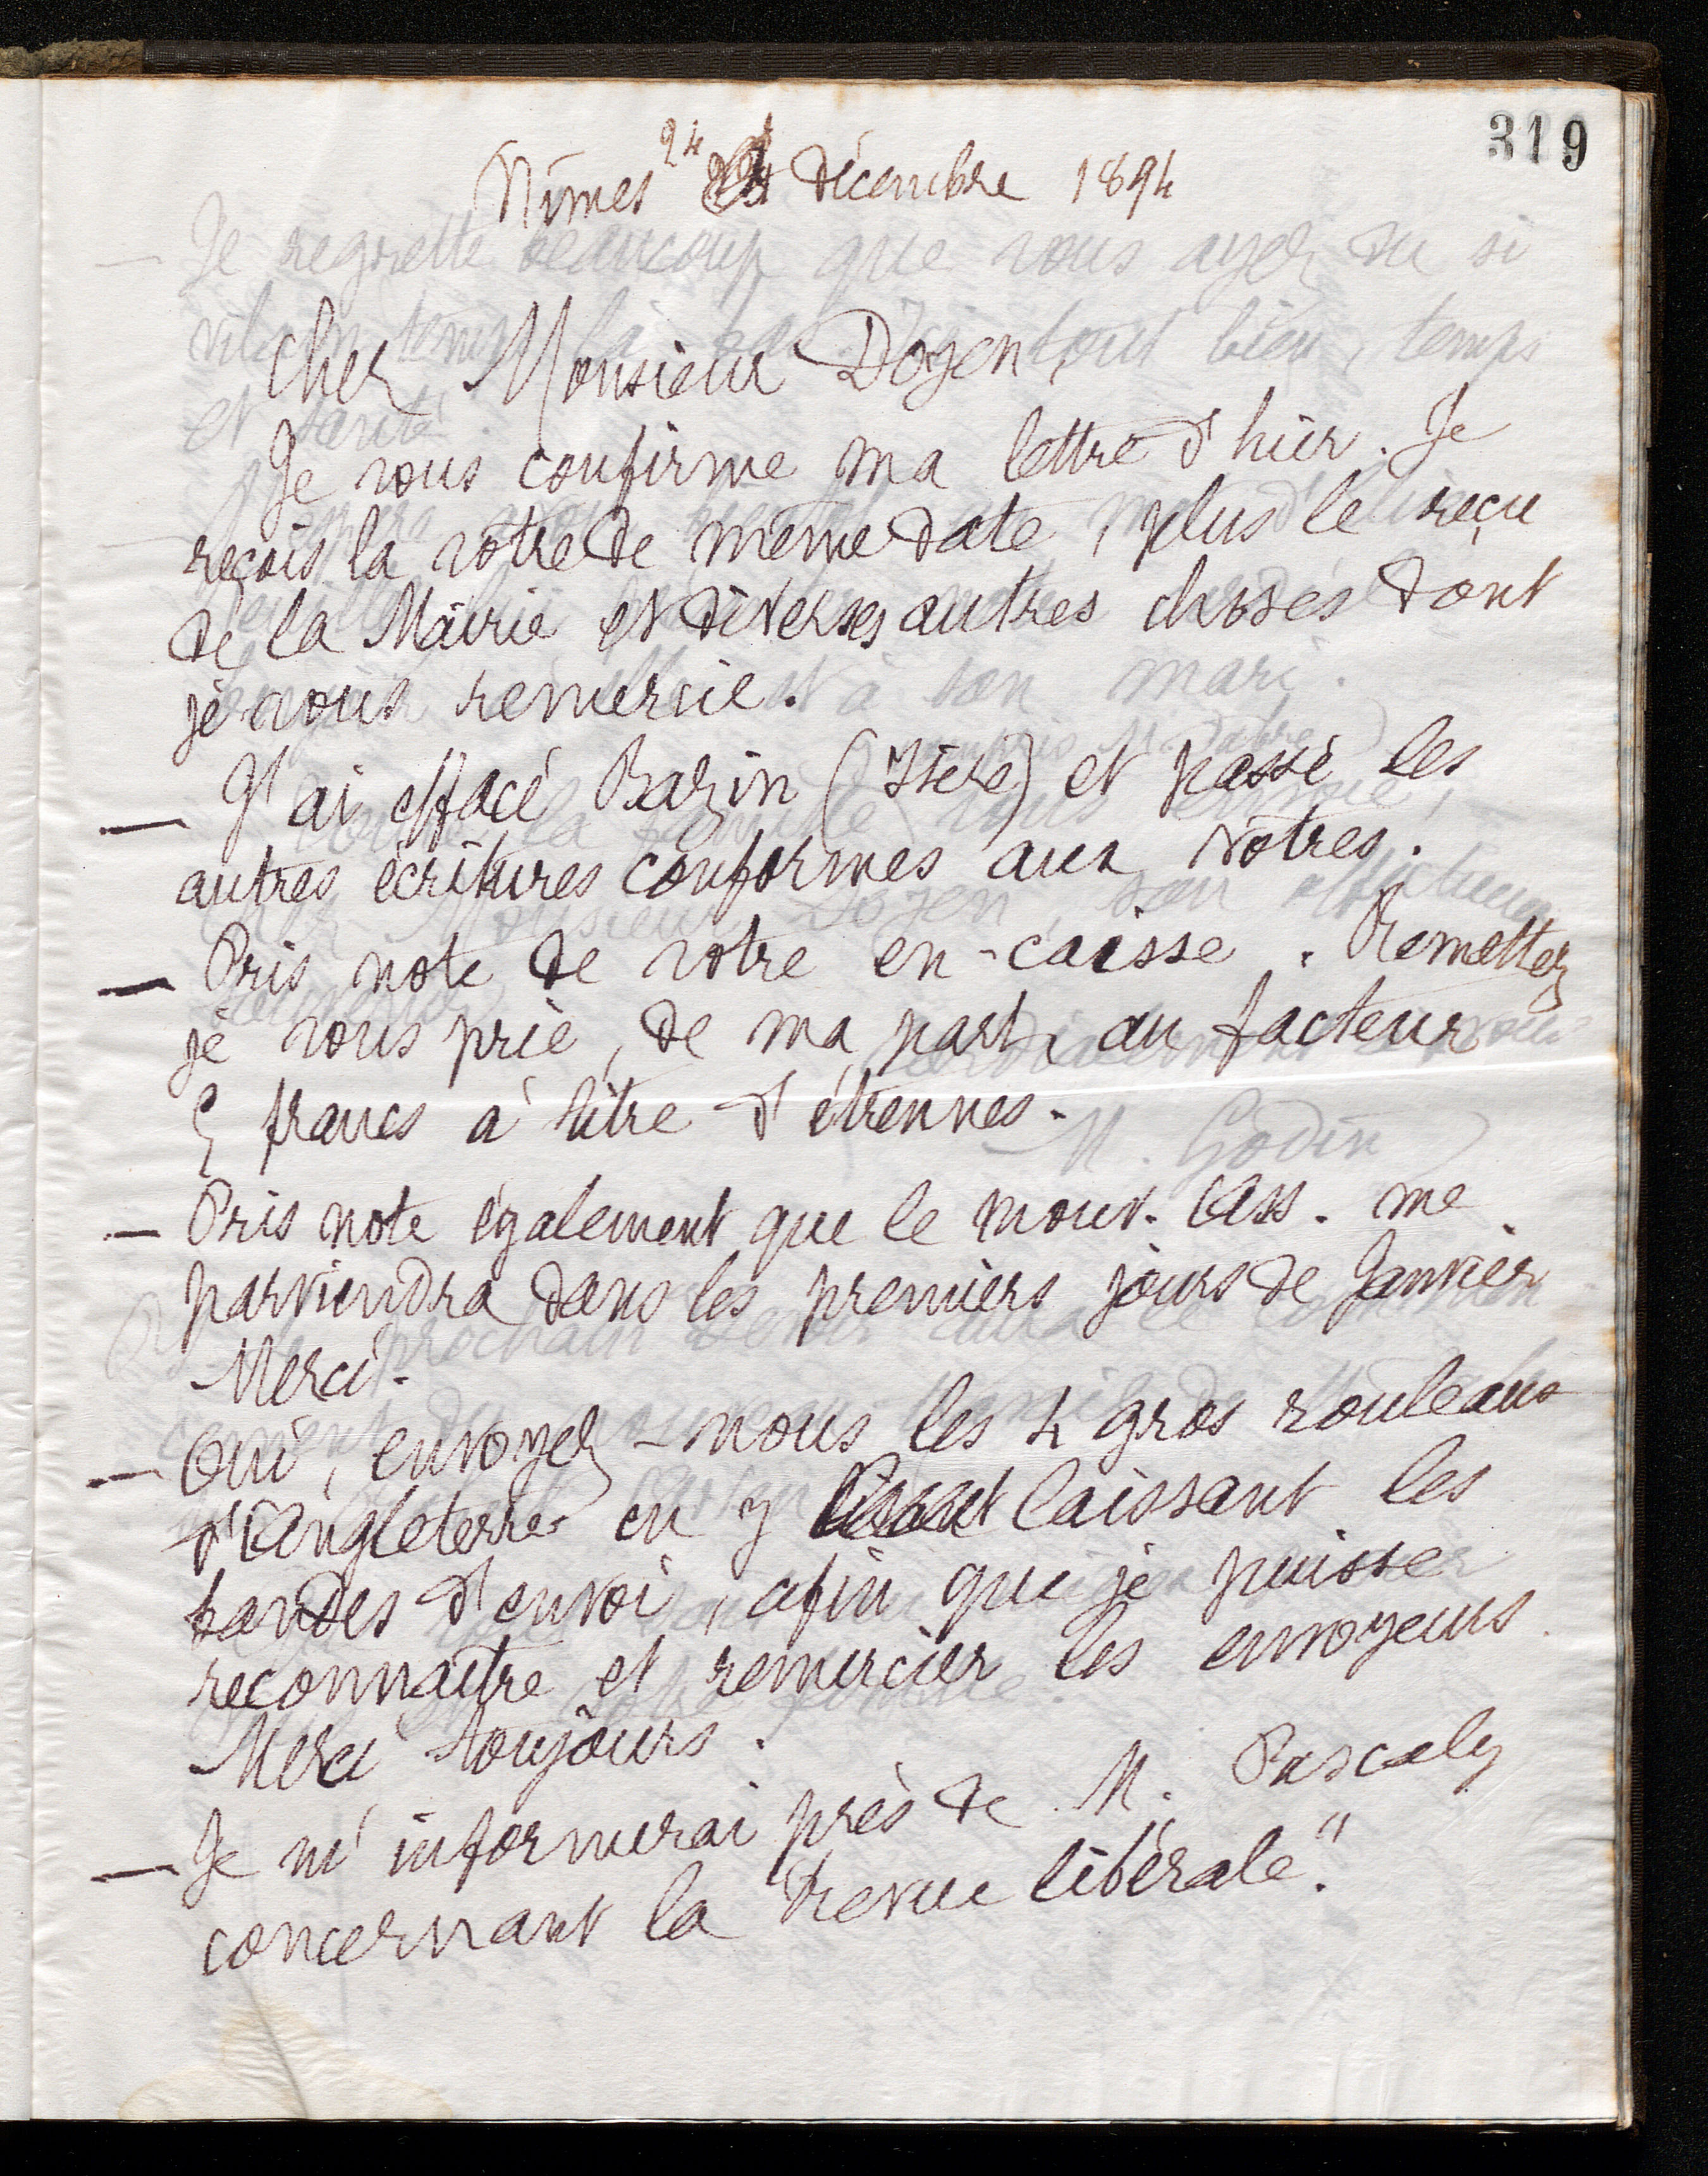 319
Nîmes 24 décembre 1894
Cher Monsieur Doyen,
Je vous confirme ma lettre d'hier. Je
reçois la vôtre de même date, plus le reçu
de la Mairie et diverses autres choses dont
je vous remercie.
— J'ai effacé Bazin (Isère) et passé les
autres écritures conformes aux vôtres.
— Pris note de votre en-caisse. Remettez
je vous prie, de ma part, au facteur
5 francs à titre d'étrennes.
— Pris note également que le mouv. Ass. me
parviendra dans les premiers jours de Janvier
Merci.
— Oui, envoyez-nous les 4 gros rouleaux
d'Angleterre en y laissant les
bandes d'envoi, afin que je puisse
reconnaître et remercier les envoyeurs.
Merci toujours.
— Je m'informerai près de M. Pascaly
concernant la "Revue libérale".